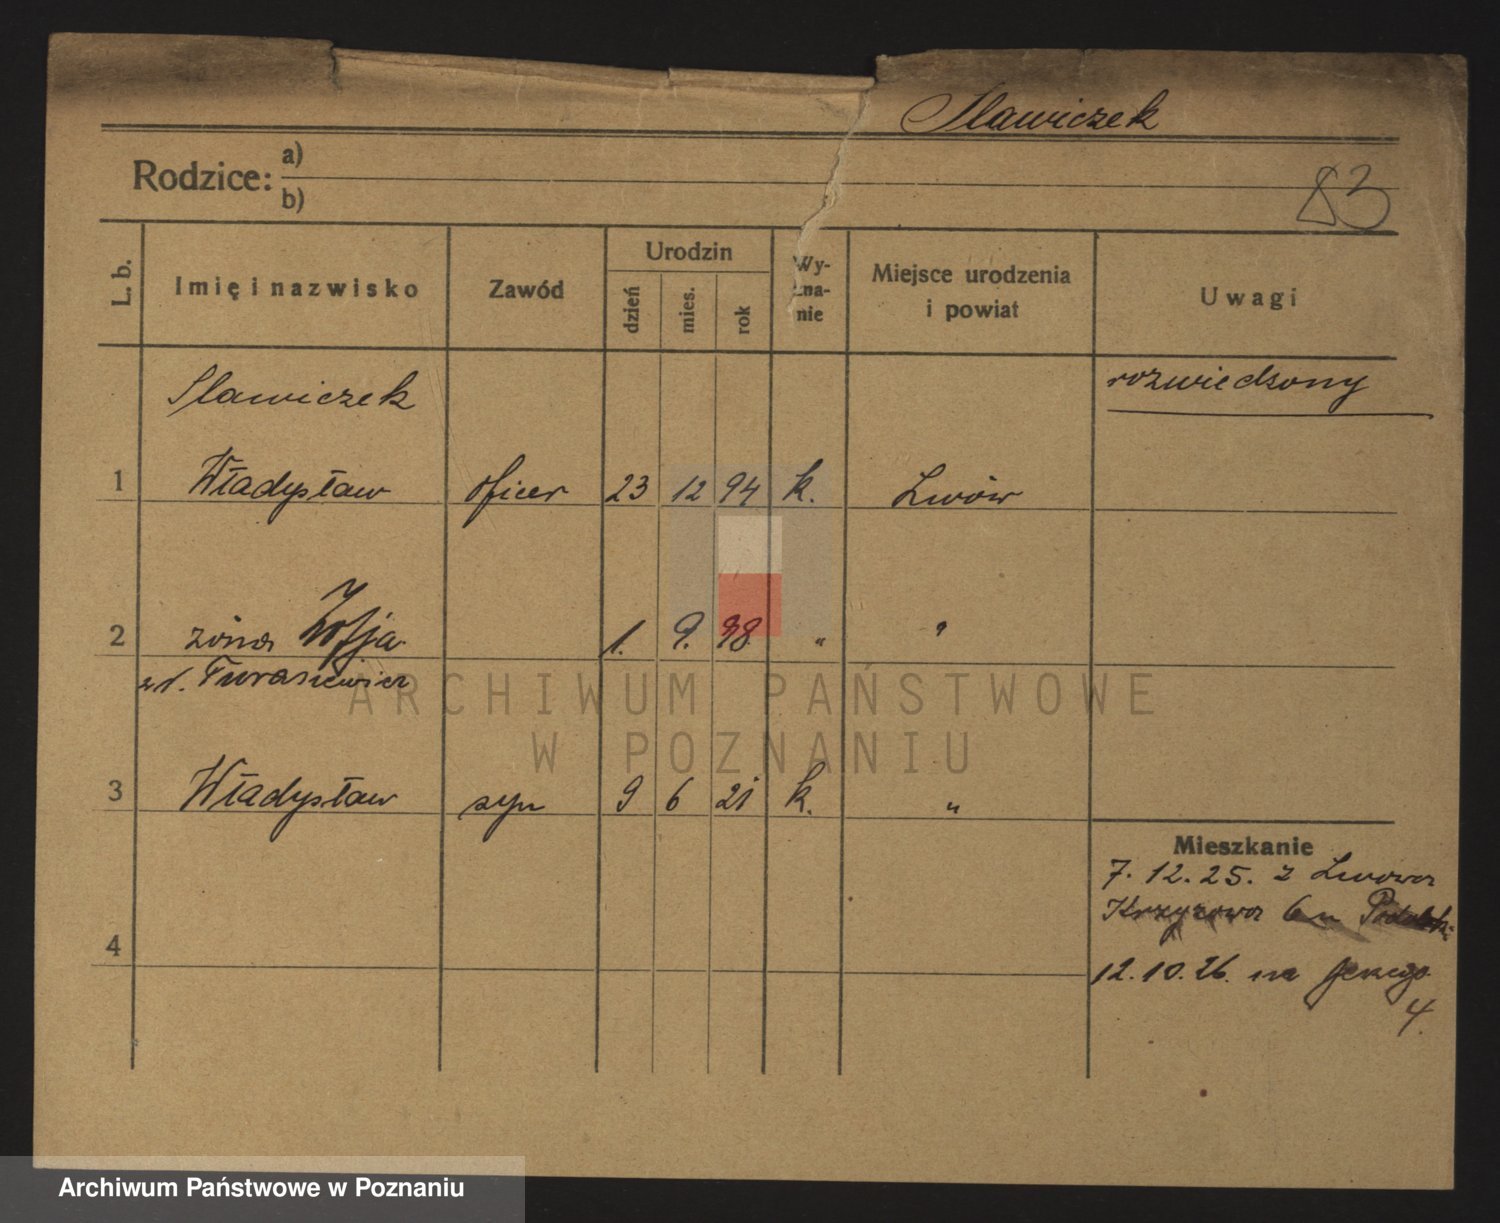 Sławiczek
Rodzice:
a)
b)
83
L. b.
Imię i nazwisko
Zawód
Urodzin
dzień
mies.
rok
Wy-
zna-
nie
Miejsce urodzenia
i powiat
Uwagi
Sławiczek
rozwiedzony
1 Władysław oficer 23 12 94 k. Lwów
2 żona Zofja 1. 9. 98 " "
Turasiewicz
3 Władysław syn 9 6 21 k. "
4
Mieszkanie
7. 12. 25. z Lwowa
Krzyżowa 6
12. 10. 26. na
4.
ARCHIWUM PAŃSTWOWE
W POZNANIU
Archiwum Państwowe w Poznaniu